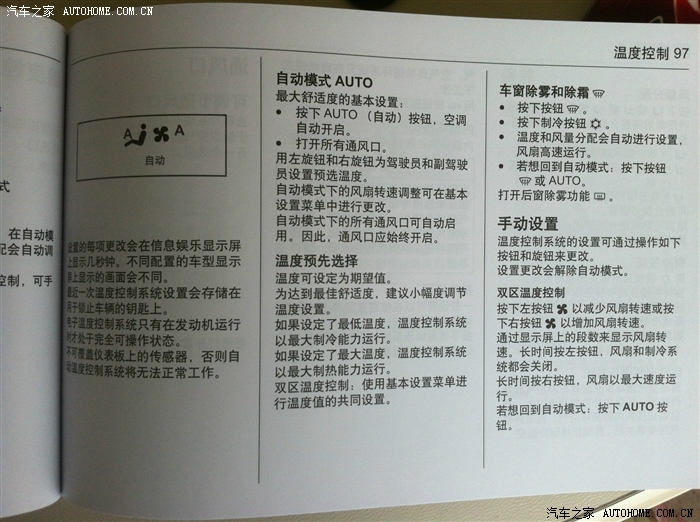 汽车之家 AUTOHOME.COM.CN
温度控制 97
式
在自动模
配会自动调
控制，可手
A A
自动
设置的每项更改会在信息娱乐显示屏
上显示几秒钟。不同配置的车型显示
屏上显示的画面会不同。
最近一次温度控制系统设置会存储在
用于锁止车辆的钥匙上。
电子温度控制系统只有在发动机运行
时才处于完全可操作状态。
不可覆盖仪表板上的传感器，否则自
动温度控制系统将无法正常工作。
自动模式 AUTO
最大舒适度的基本设置：
● 按下 AUTO （自动）按钮，空调
自动开启。
● 打开所有通风口。
用左旋钮和右旋钮为驾驶员和副驾驶
员设置预选温度。
自动模式下的风扇转速调整可在基本
设置菜单中进行更改。
自动模式下的所有通风口可自动启
用。因此，通风口应始终开启。
温度预先选择
温度可设定为期望值。
为达到最佳舒适度，建议小幅度调节
温度设置。
如果设定了最低温度，温度控制系统
以最大制冷能力运行。
如果设定了最大温度，温度控制系统
以最大制热能力运行。
双区温度控制：使用基本设置菜单进
行温度值的共同设置。
车窗除雾和除霜
● 按下按钮 。
● 按下制冷按钮 。
● 温度和风量分配会自动进行设置，
风扇高速运行。
● 若想回到自动模式：按下按钮
或 AUTO。
打开后窗除雾功能 。
手动设置
温度控制系统的设置可通过操作如下
按钮和旋钮来更改。
设置更改会解除自动模式。
双区温度控制
按下左按钮 以减少风扇转速或按
下右按钮 以增加风扇转速。
通过显示屏上的段数来显示风扇转
速。长时间按左按钮，风扇和制冷系
统都会关闭。
长时间按右按钮，风扇以最大速度运
行。
若想回到自动模式：按下 AUTO 按
钮。
汽车之家 AUTOHOME.COM.CN